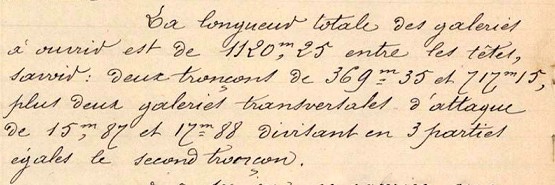 La longueur totale des galeries
à ouvrir est de 1120,ᵐ25 entre les têtes,
savoir: deux tronçons de 369ᵐ35 et 717ᵐ15,
plus deux galeries transversales d'attaque
de 15,ᵐ87 et 17ᵐ88 divisant en 3 parties
égales le second tronçon.